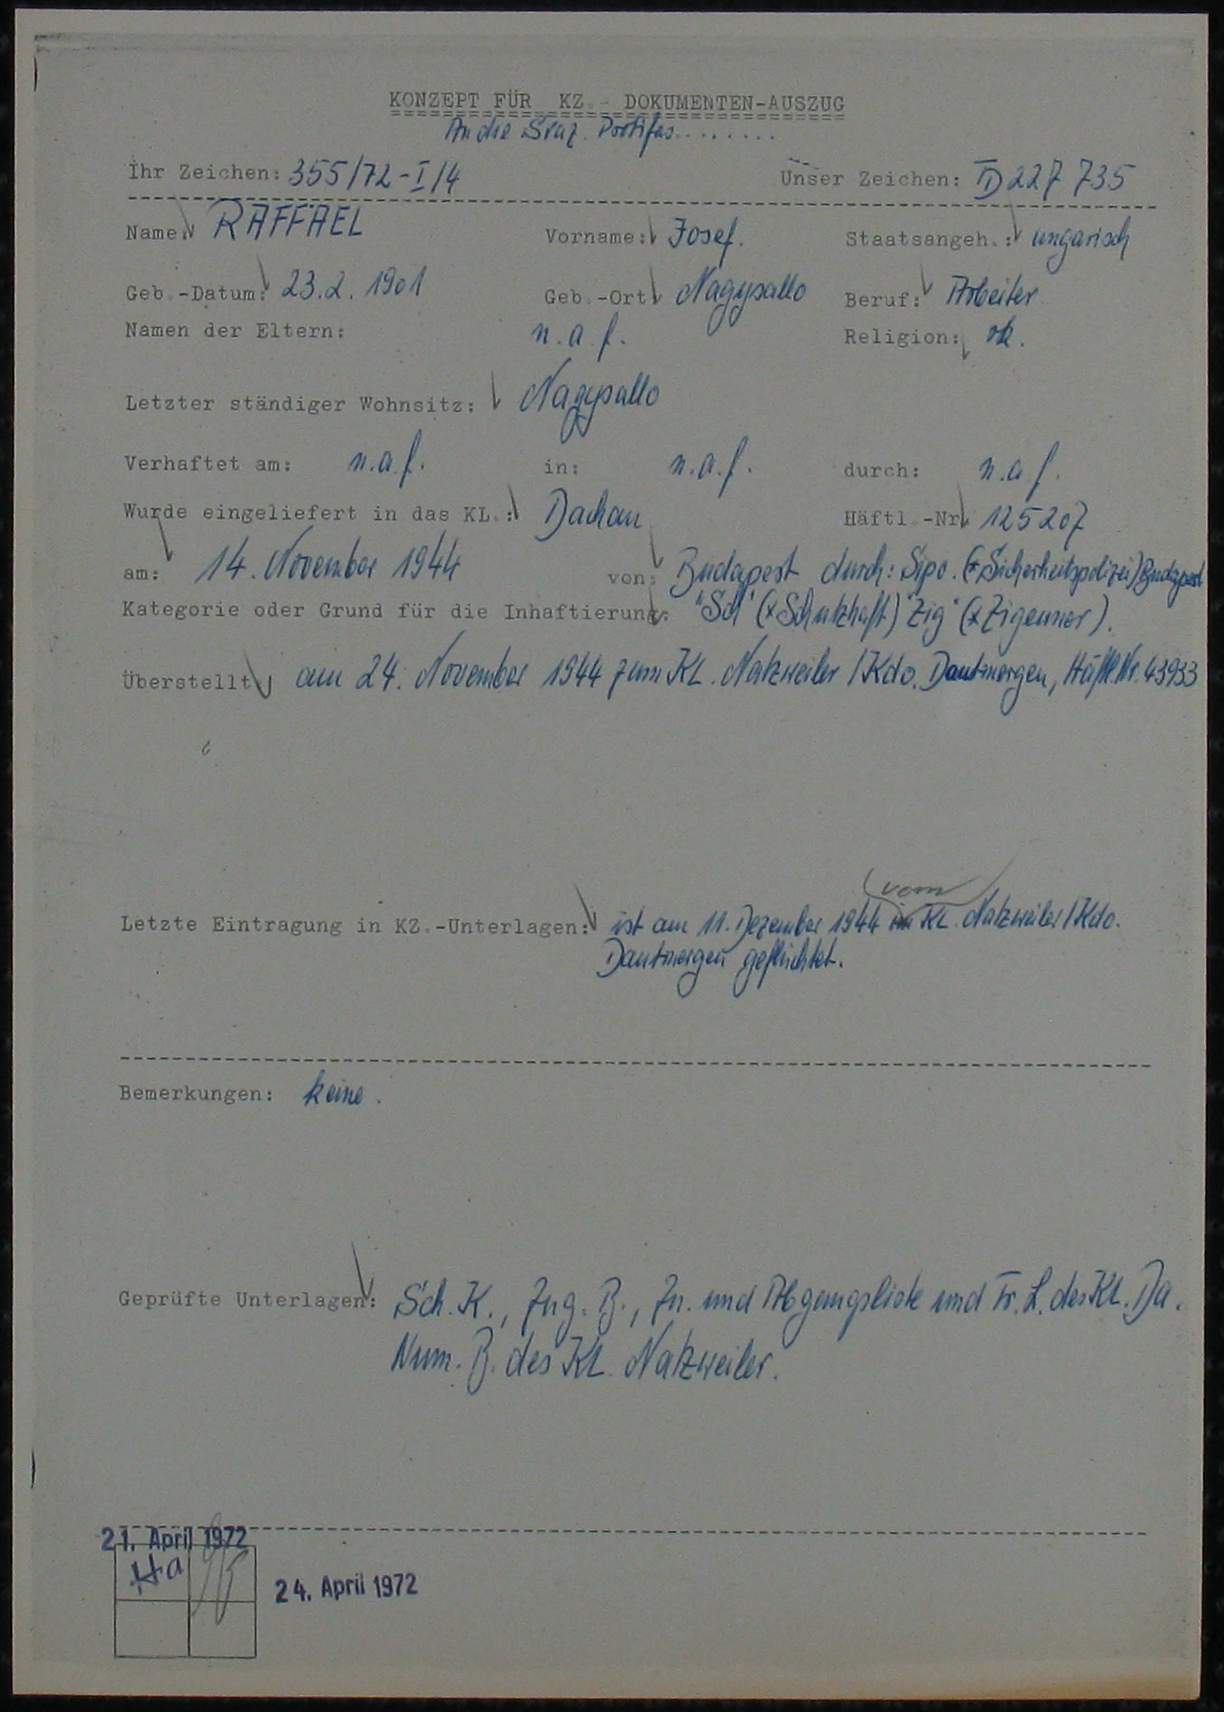 KONZEPT FÜR KZ.- DOKUMENTEN-AUSZUG
Ihr Zeichen: 355/72-I/4 Unser Zeichen: TD 227 735
Name: RAFFAEL Vorname: Josef. Staatsangeh.: ungarisch
Geb.-Datum: 23.2.1901 Geb.-Ort: Nagysallo Beruf: Arbeiter
Namen der Eltern: n.a.f. Religion: rk.
Letzter ständiger Wohnsitz: Nagysallo
Verhaftet am: n.a.f. in: n.a.f. durch: n.a.f.
Wurde eingeliefert in das KL.: Dachau Häftl.-Nr. 125207
am: 14. November 1944 von: Budapest durch: Sipo. (*Sicherheitspolizei) Budapest
Kategorie oder Grund für die Inhaftierung: "Sch" (*Schutzhaft) "Zig" (*Zigeuner).
Überstellt am 24. November 1944 zum KL. Natzweiler/Kdo. Dautmergen, Häftl.Nr. 43933
vom
Letzte Eintragung in KZ.-Unterlagen: ist am 11. Dezember 1944 im KL. Natzweiler/Kdo.
Dautmergen geflüchtet.
Bemerkungen: keine.
Geprüfte Unterlagen: Sch.K., Zug.B., Zu. und Abgangsliste und Tr.L. des KL. Da.
Num.B. des KL. Natzweiler.
21. April 1972
Ha
24. April 1972